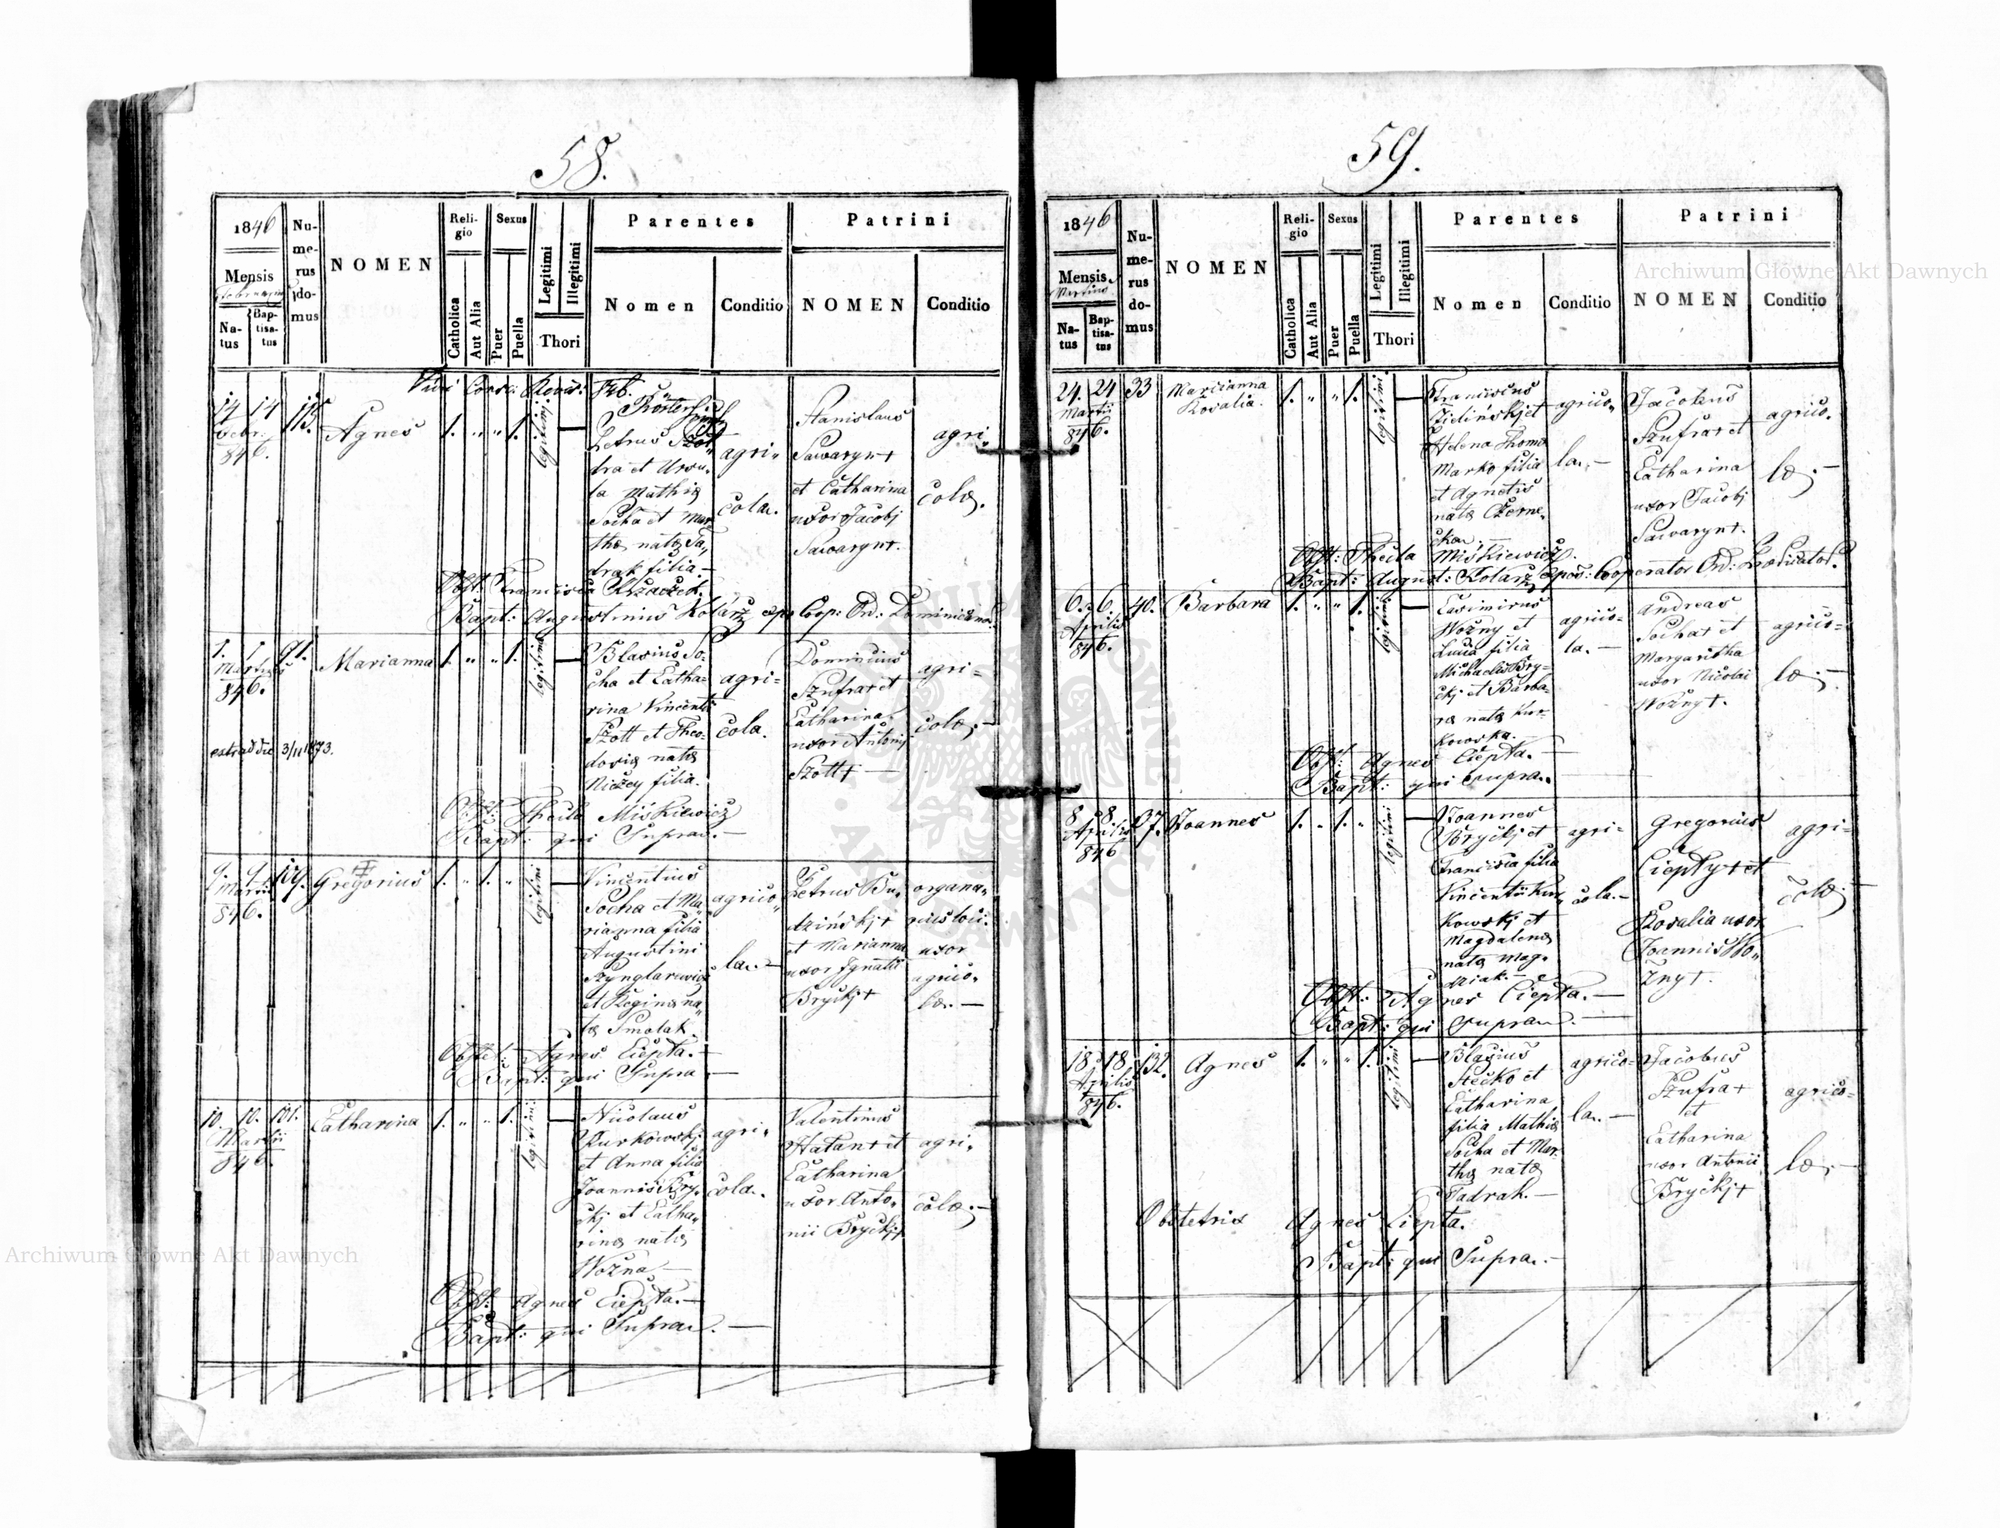 58.
1846
Mensis
Februarius
Na-
tus
Bap-
tisa-
tus
Nu-
me-
rus
do-
mus
NOMEN
Reli-
gio
Catholica
Aut Alia
Sexus
Puer
Puella
Legitimi
Illegitimi
Thori
Parentes
Nomen
Conditio
Patrini
NOMEN
Conditio
14 14 115. Agnes 1. " " 1. legitimi —
Febr.
846.
Petrus
tra et Ursu-
la Mathiæ
Socha et Mar-
thæ natæ Ta-
drak filia.—
agri-
cola.
Stanislaus
Sawaryn +
et Catharina
uxor Jacobj
Sawaryn +.
agri-
colæ.
Obst: Francisca Krzaczek.
Bapt: Augustinus Kolarz exp. Coop: Ord: Dominicanor.
1. 1. 91. Marianna 1. " " 1. legitimi —
Martius
846.
extrad die 3/11 1873.
Blasius So-
cha et Catha-
rina Vincenti
Szott et Theo-
doriæ natæ
Niczey filia.
agri-
cola.
Dominicus
Szufrat et
Catharina
uxor Antonij
Szott + —
agri-
colæ. —
Obst: Thecla Miskiewicz
Bapt: qui Supra. —
9. 9. 109. Gregorius 1. " 1. " legitimi —
Martii
846.
Vincentius
Socha et Ma-
rianna filia
Augustini
Szynglarewicz
et Reginæ na-
tæ Smolak.
agrico-
la. —
Petrus Bu-
dzińskj +
et Marianna
uxor Ignatii
Bryckj +
organa-
rius loci.
uxor
agrico-
læ. —
Obstet: Agnes Ciepta. —
Bapt: qui Supra —
10. 10. 101. Catharina 1. " " 1. legitimi —
Martii
846.
Nicolaus
Kurkowskj
et Anna filia
Joannis Bry-
ckj et Catha-
rinæ natæ
Wozna —
agri-
cola.
Valentinus
Hatan + et
Catharina
uxor Anto-
nii Bryckj +
agri-
colæ. —
Obst: Agnes Ciepta. —
Bapt: qui Supra. —
59.
1846
Mensis
Martius
Na-
tus
Bap-
tisa-
tus
Nu-
me-
rus
do-
mus
NOMEN
Reli-
gio
Catholica
Aut Alia
Sexus
Puer
Puella
Legitimi
Illegitimi
Thori
Parentes
Nomen
Conditio
Patrini
NOMEN
Conditio
24. 24 33 Marianna 1. " " 1. legitimi —
Rosalia.
Martii
846.
Franciscus
Zielińskj et
Helena Thomæ
Marko filia
et Agnetis
natæ Czerne-
cka.
agrico-
la. —
Jacobus
Szufrat et
Catharina
uxor Jacobj
Sawaryn +.
agrico-
læ. —
Obst: Thecla Miskiewicz.
Bapt: August: Kolarz expos: Cooperator Ord: Prædicator.
6. 6. 40. Barbara 1. " " 1. legitimi —
Aprilis
846.
Casimirus
Wozny et
Lucia filia
Michaelis Bry-
ckj et Barba-
ræ natæ Kur-
kowska. —
agrico-
la. —
Andreas
Socha + et
Margaritha
uxor Nicolai
Wozny +.
agrico-
læ. —
Obst: Agnes Ciepta. —
Bapt: qui Supra. —
8 8. 27. Joannes 1. " 1. " legitimi —
Aprilis
846
Joannes
Bryckj et
Francisca filia
Vincentii Kur-
kowskj et
Magdalenæ
natæ Mag-
dziak. —
agri-
cola. —
Gregorius
Ciepty + et
Rosalia uxor
Joannis Wo-
zny +.
agri-
colæ
Obst: Agnes Ciepta. —
Bapt: qui Supra. —
18 18 132. Agnes 1. " " 1. legitimi —
Aprilis
846.
Blasius
Stecko et
Catharina
filia Mathiæ
Socha et Mar-
thæ natæ
Tadrak. —
agrico-
la. —
Jacobus
Szufra +
et
Catharina
uxor Antonii
Bryckj +
agrico-
læ. —
Obstetrix Agnes Ciepta.
Bapt: qui Supra. —
Archiwum Główne Akt Dawnych
Archiwum Główne Akt Dawnych